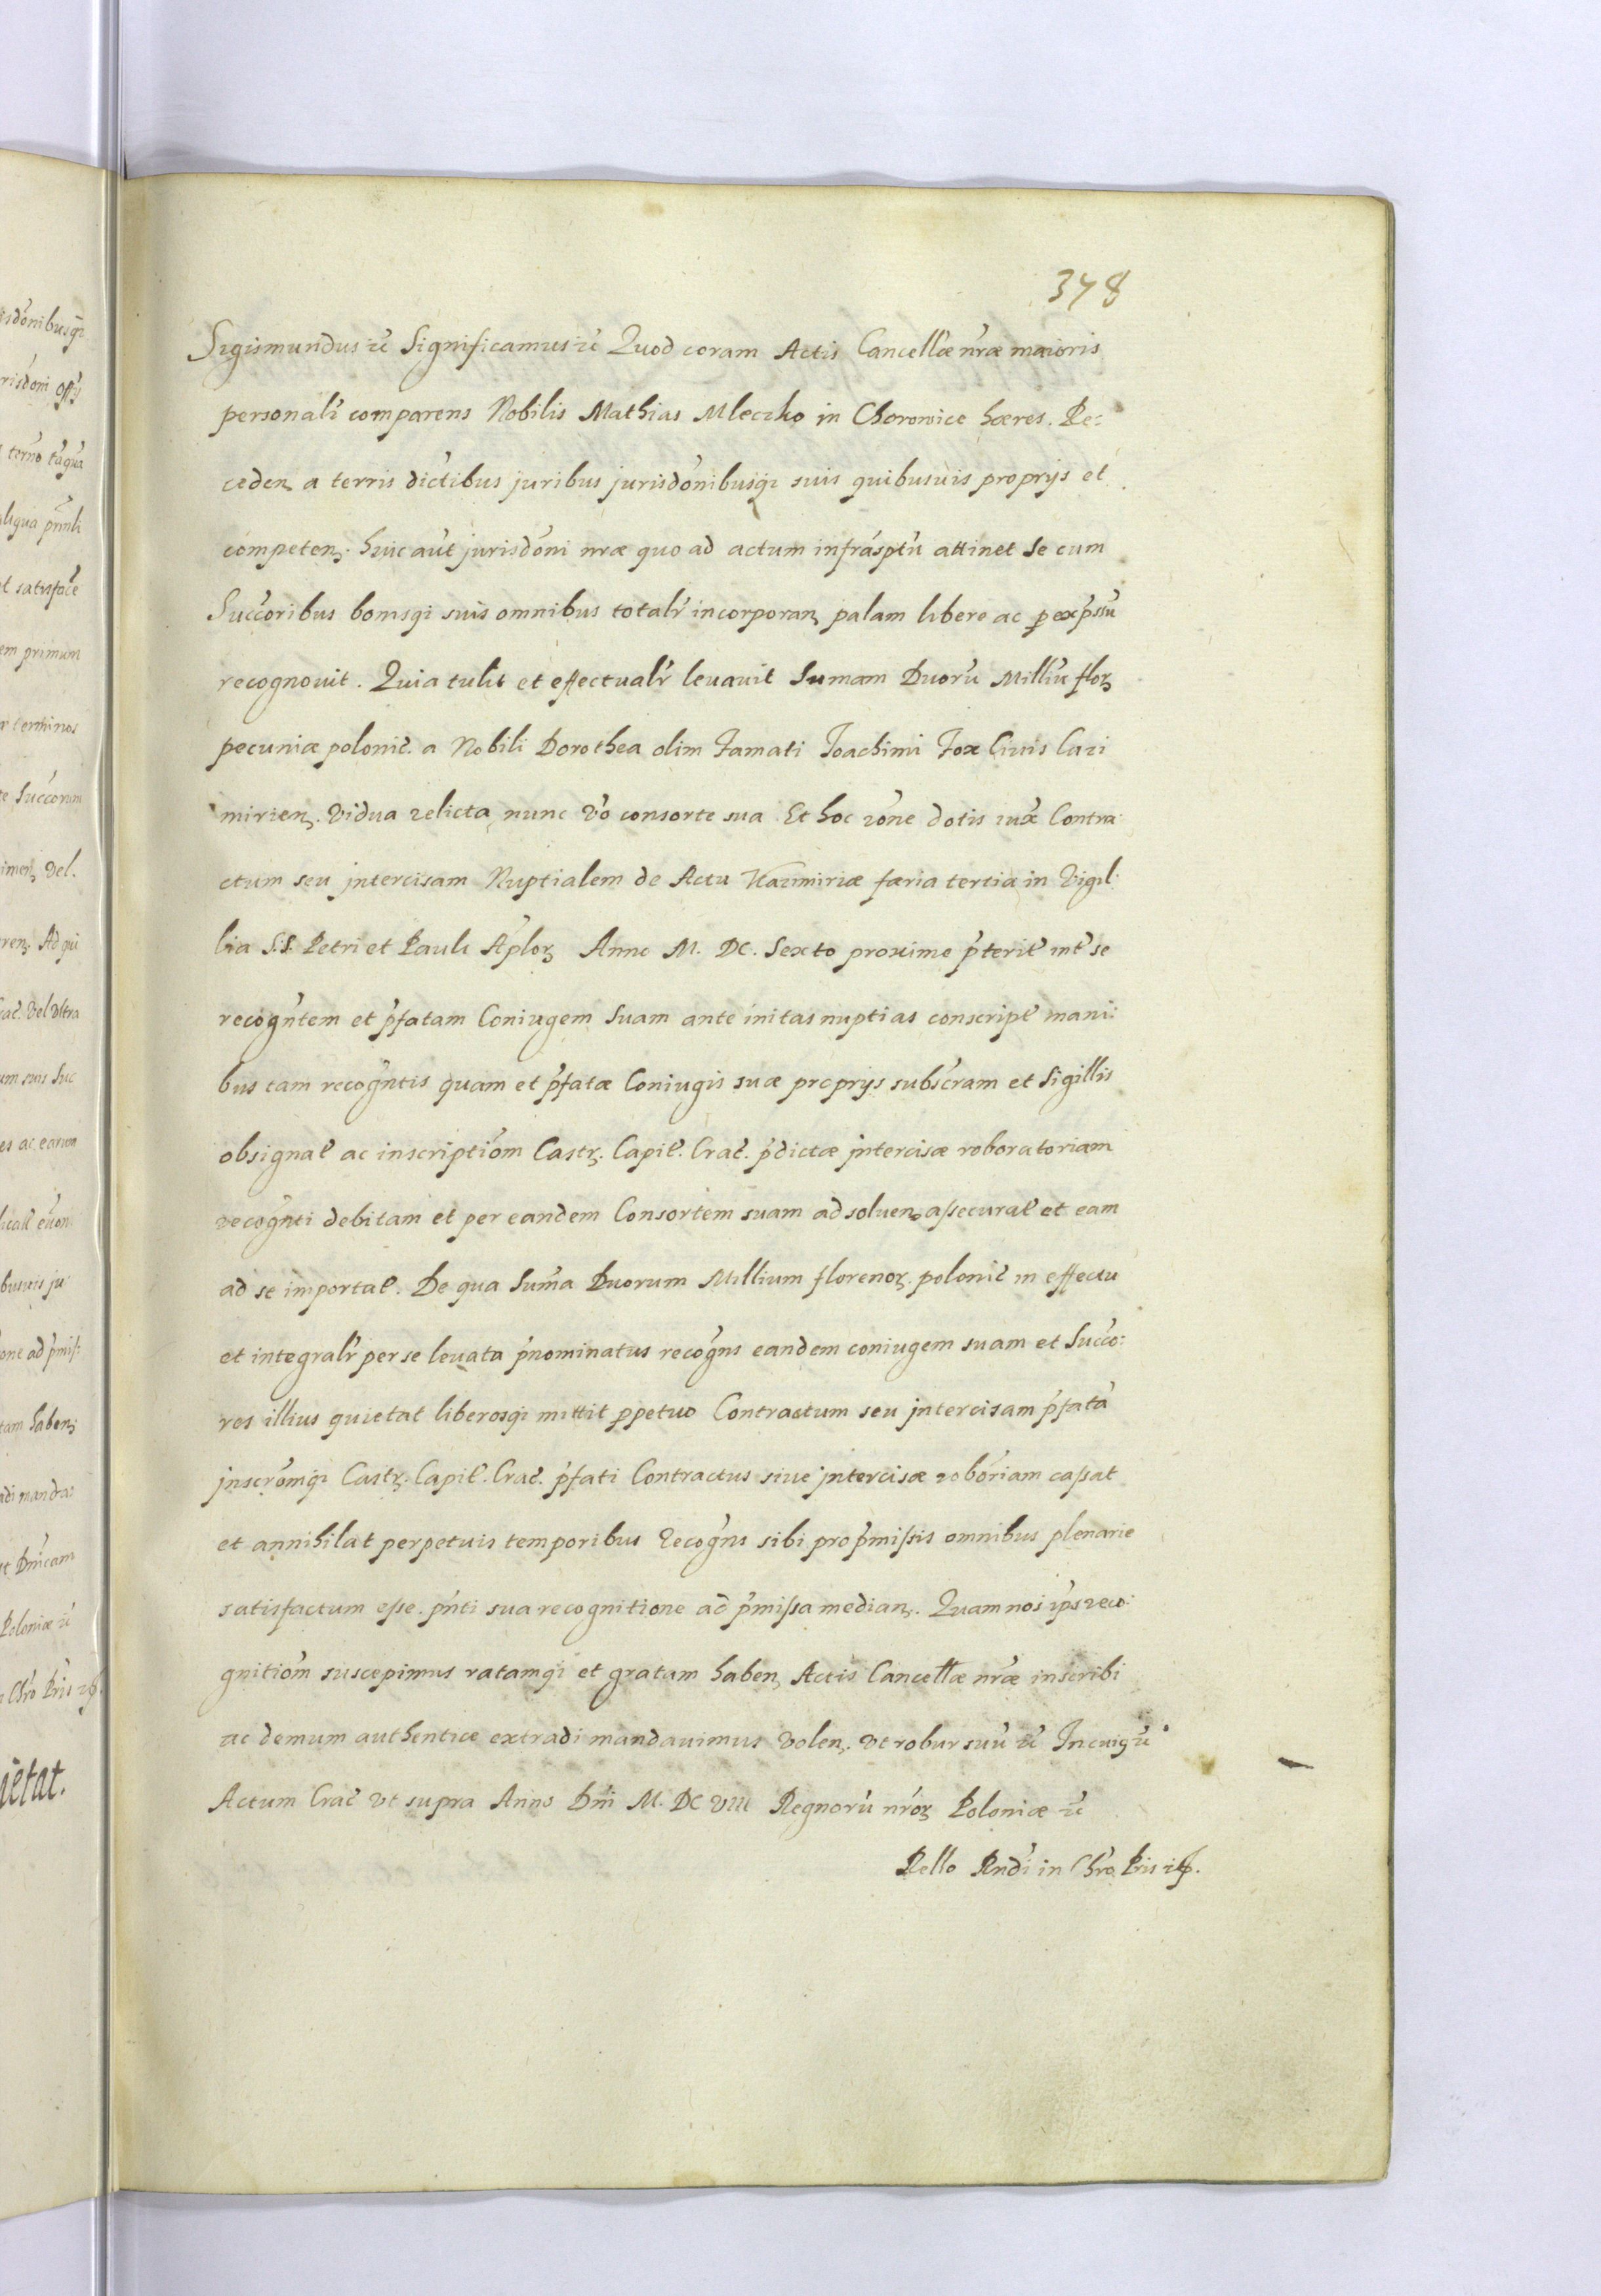 378
Sigismundus etc̃ Significamus etc̃ Quod coram Actis Cancellæ nr̃æ maioris
personalr̃ comparens Nobilis Mathias Mleczko in Chorowice hæres. Re:
ceden. a terris dictibus juribus jurisdõnibusq; suis quibusuis proprijs et
competen. huic aũt jurisdõni nr̃æ quo ad actum infrasptũ attinet se cum
Succ̃oribus bonisq; suis omnibus totalr̃ incorporan. palam libere ac p exp̃ssũ
recognouit. Quia tulit et effectualr̃ leuauit Sumam Duorũ Milliũ floꝝ
pecuniæ polonic̃. a Nobili Dorothea olim Famati Joachimi Fox Ciuis Cazi
mirien. vidua relicta, nunc võ consorte sua. Et hoc rõne dotis iuxͣ Contra:
ctum seu jntercisam Nuptialem de Actu Kazimiriæ færia tertia in Vigil:
lia S.S. Petri et Pauli Aploꝝ Anno M. DC. Sexto proxime p̃terit̃ int̃ se
recogñtem et p̃fatam Coniugem Suam ante initas nuptias conscript̃ mani:
bus tam recogñtis quam et p̃fatæ Coniugis suæ proprijs subscr̃am et Sigillis
obsignat̃ ac inscriptiõm Castꝝ. Capit̃. Crac̃. p̃dictæ jntercisæ roboratoriam
recogñti debitam et per eandem Consortem suam ad soluen. assecurat̃ et eam
ad se importat̃. De qua Sum̃a Duorum Millium florenoꝝ. polonic̃ in effectu
et integralr̃ per se leuata p̃nominatus recogñs eandem coniugem suam et Succ̃o:
res illius quietat liberosq; mittit ꝑpetuo Contractum seu jntercisam p̃fatã
jnscrõmq; Castꝝ. Capit̃. Crac̃. p̃fati Contractus siue jntercisæ roboriam cassat
et annihilat perpetuis temporibus Recogñs sibi pro p̃missis omnibus plenarie
satisfactum esse. p̃nti sua recognitione ad p̃missa median. Quam nos ip̃s reco:
gnitiõm suscepimus ratamq; et gratam haben. Actis Cancellæ nr̃æ inscribi
ac demum authentice extradi mandauimus volen. vt robur suũ etc̃ In cuiq ũ
Actum Crac̃ vt supra Anno Dñi M. DC VIII Regnorũ nr̃oꝝ Poloniæ etc̃
Rello Rndi in Chr̃o Pris